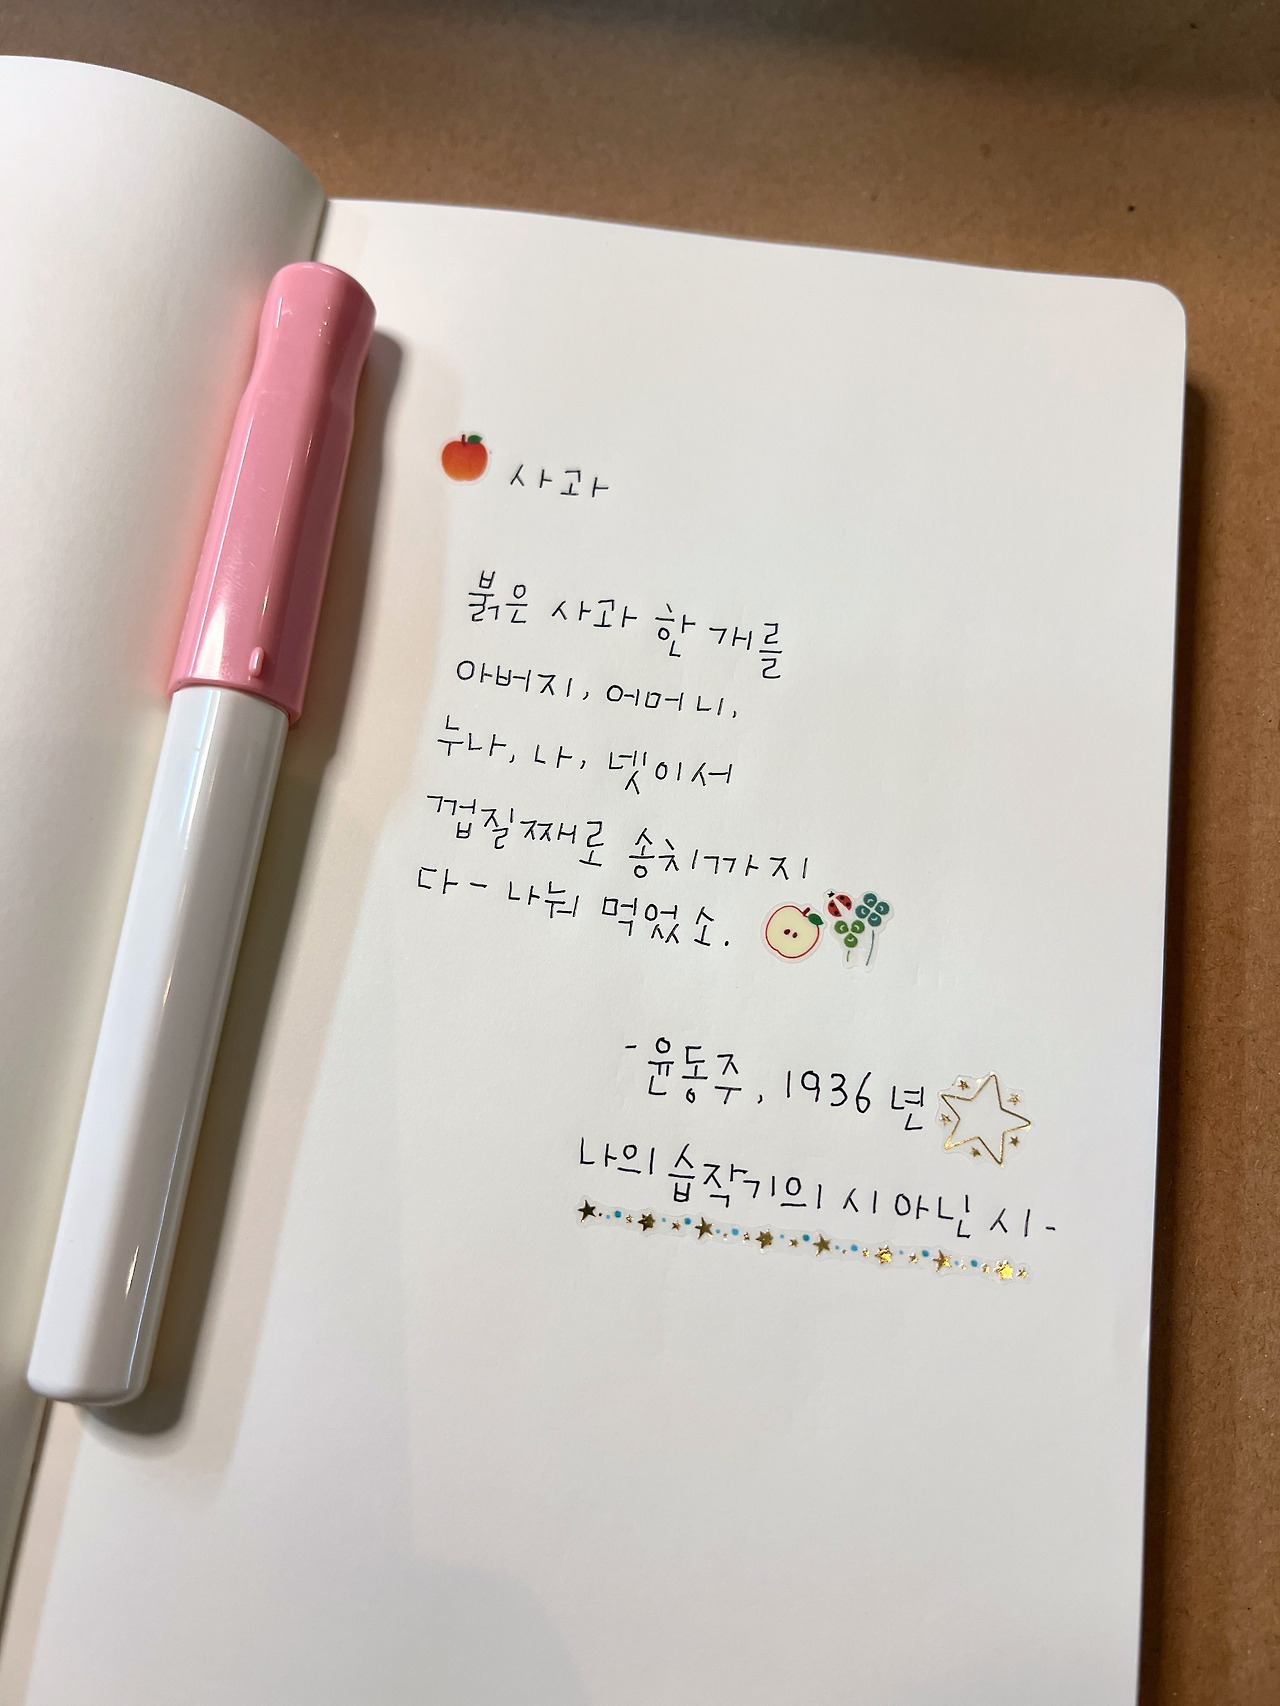 사과
붉은 사과 한 개를
아버지, 어머니,
누나, 나, 넷이서
껍질째로 송치까지
다- 나눠 먹었소.
- 윤동주, 1936년
나의 습작기의 시 아닌 시-